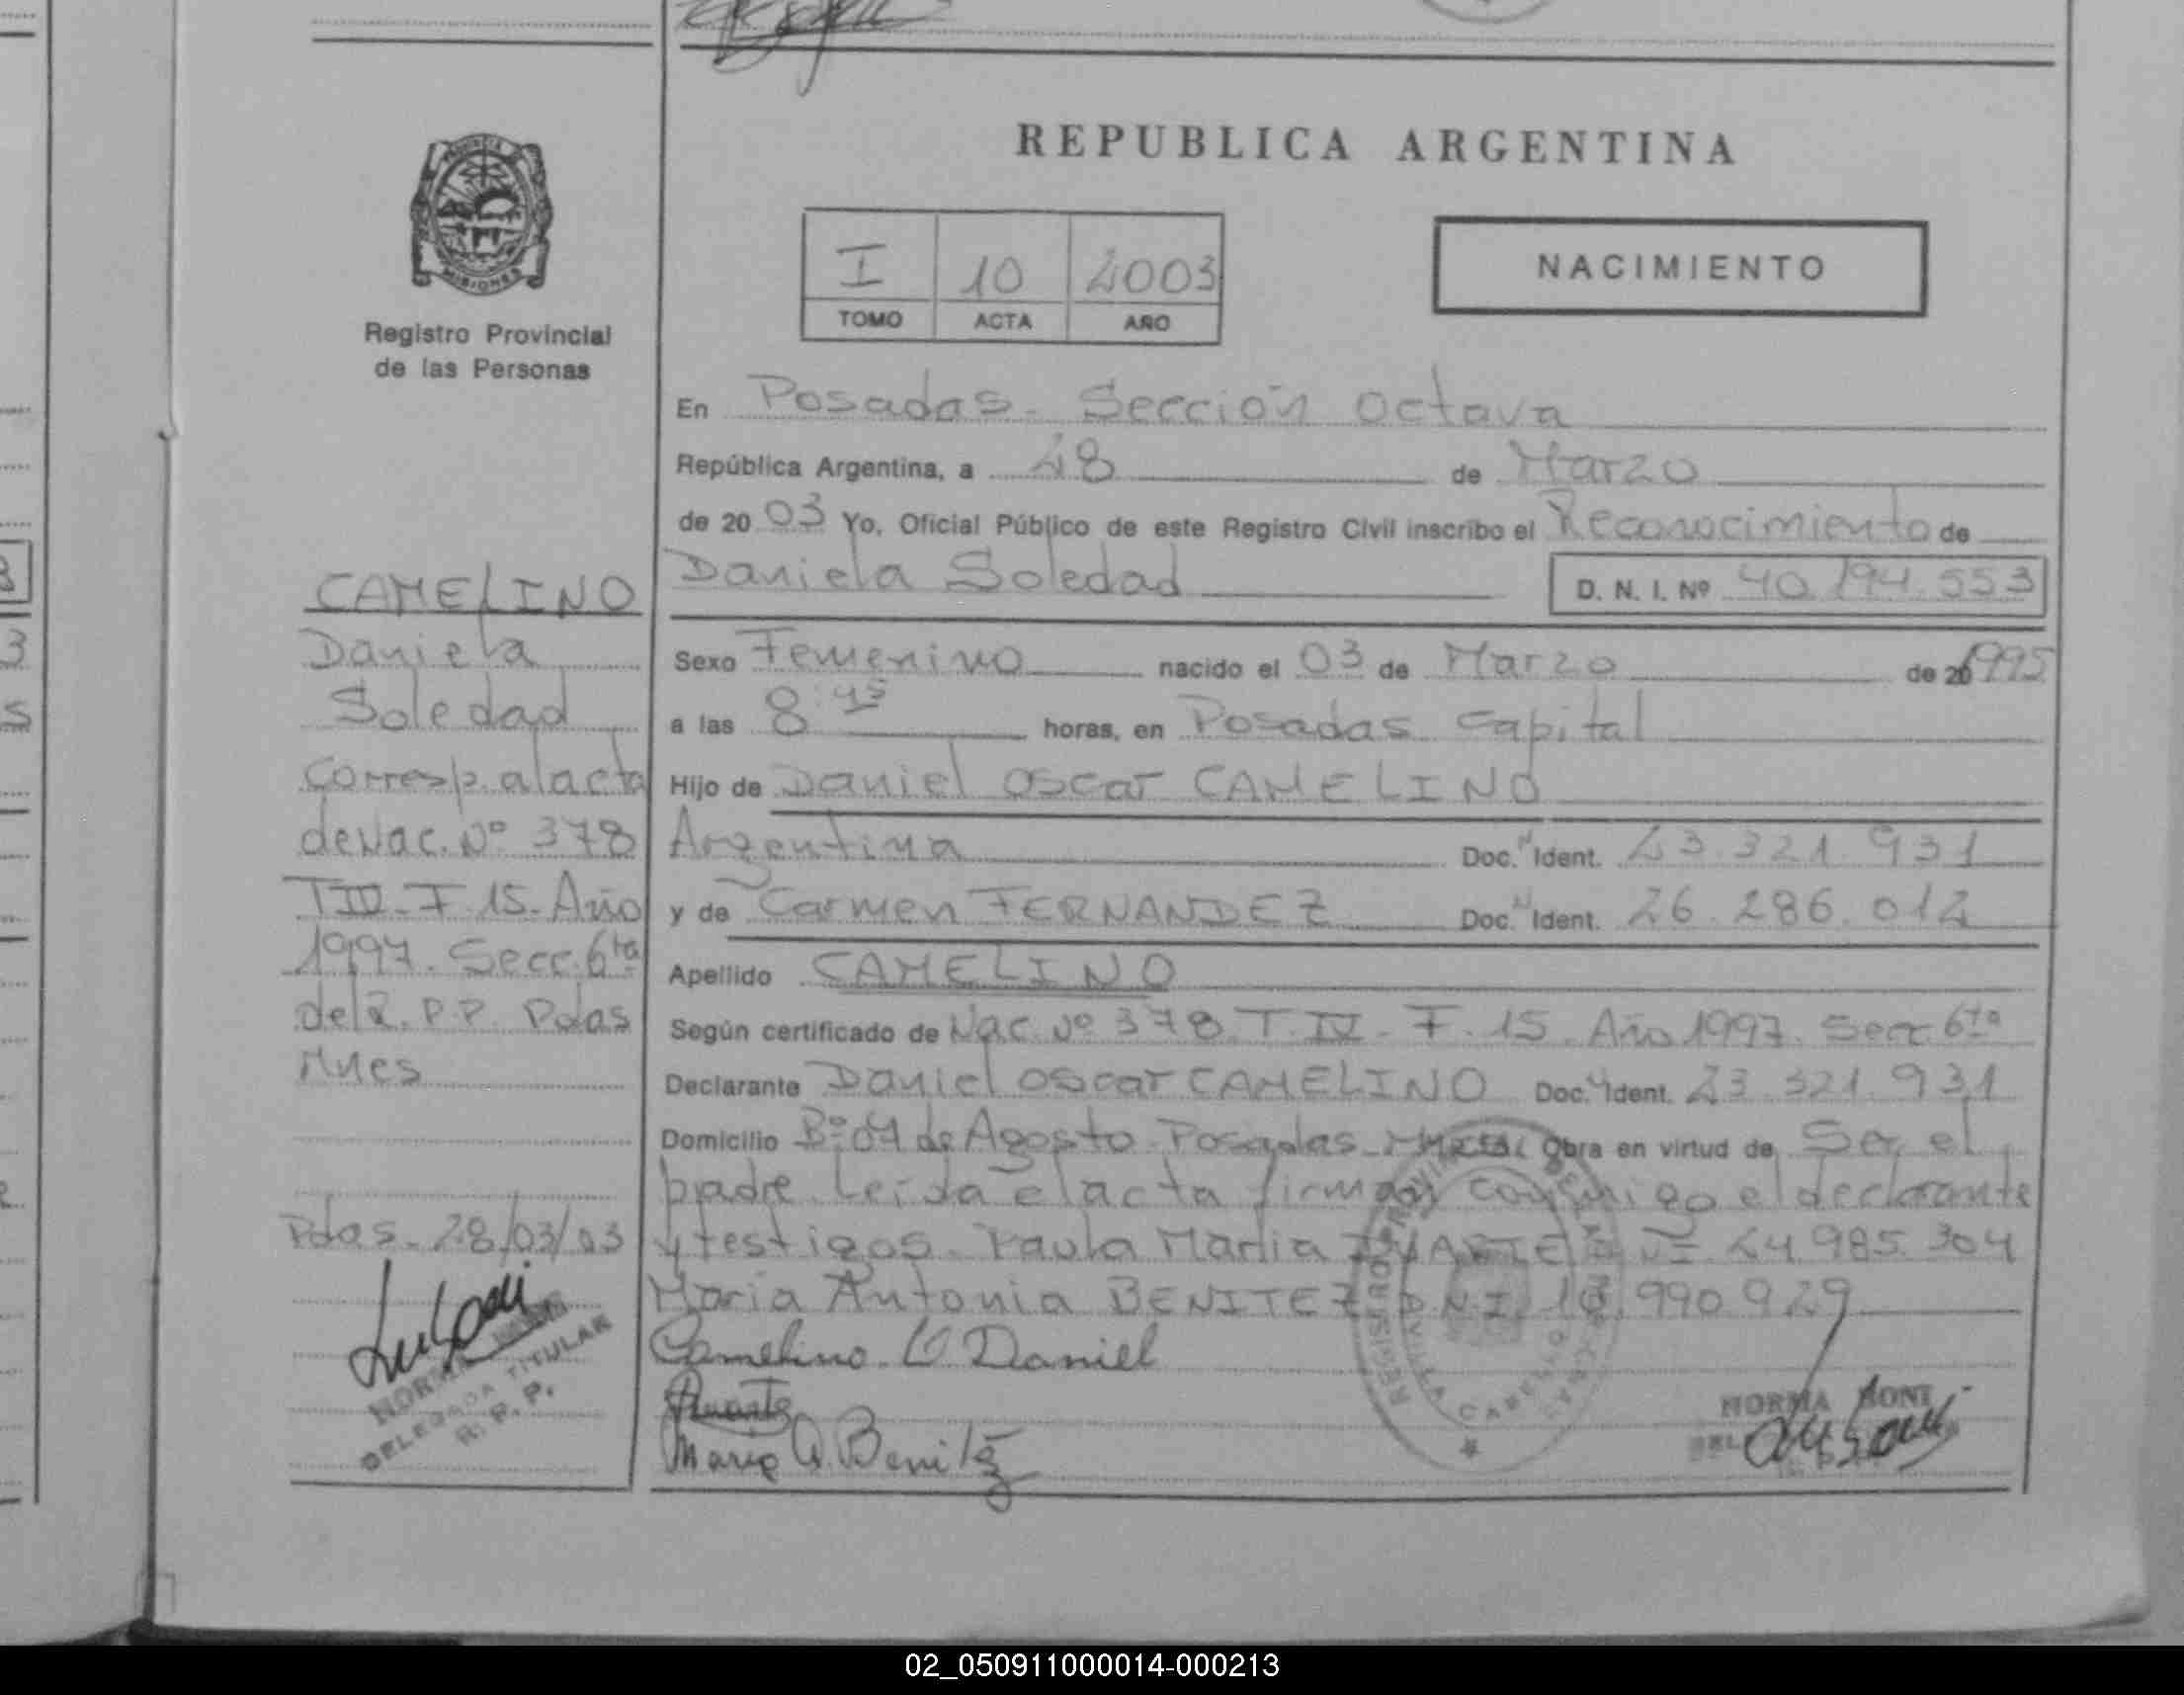 REPUBLICA ARGENTINA
PROVINCIA DE
MISIONES
Registro Provincial
de las Personas
I 10 2003
TOMO ACTA AÑO
NACIMIENTO
En Posadas - Sección Octava
República Argentina, a 28 de Marzo
de 20 03 Yo, Oficial Público de este Registro Civil inscribo el Reconocimiento de
Daniela Soledad D. N. I. Nº 40.194.553
Sexo Femenino nacido el 03 de Marzo de 1995
a las 8:45 horas, en Posadas Capital
Hijo de Daniel Oscar CAMELINO
Argentina Doc. Ident. 23.321.931
y de Carmen FERNANDEZ Doc. Ident. 26.286.012
Apellido CAMELINO
Según certificado de Nac. Nº 378. T. IV - F. 15. Año 1997. Secc. 6ta
Declarante Daniel Oscar CAMELINO Doc. Ident. 23.321.931
Domicilio Bº 07 de Agosto Posadas Mnes. Obra en virtud de Ser el
padre. Leída el acta firman conmigo el declarante
y testigos. Paula Maria DUARTE 24.985.304
Maria Antonia BENITEZ D.N.I. 990.929
Camelino O. Daniel
Duarte
Maria A. Benitez
NORMA
CAMELINO
Daniela
Soledad
Corresp. al acta
de Nac. Nº 378
T IV - F. 15 - Año
1997. Secc. 6ta
del R. P. P. Pdas
Mnes
Pdas. 28/03/03
NORMA
DELEGADA TITULAR
R. P. P.
02_050911000014-000213